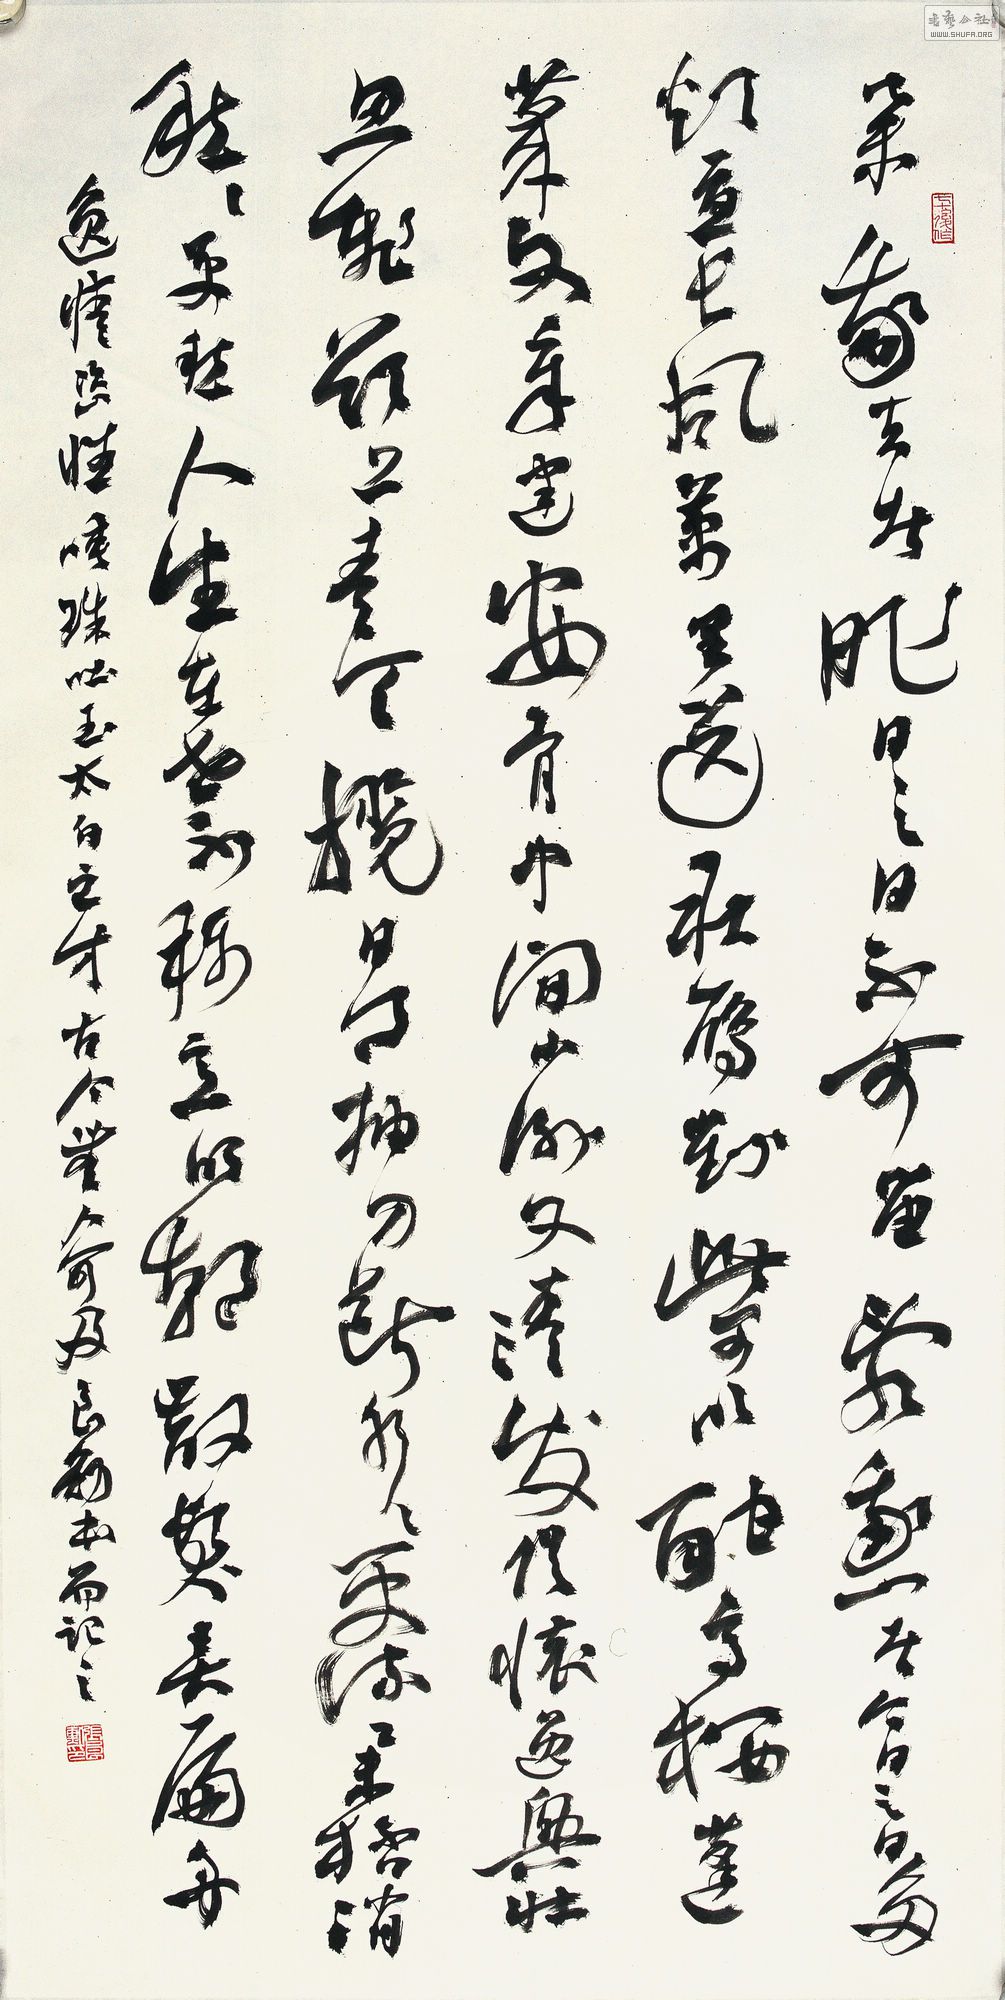 弃我去者昨日之日不可留乱我心者今日之日多
烦忧长风万里送秋雁对此可以酣高楼蓬
莱文章建安骨中间小谢又清发俱怀逸兴壮
思飞欲上青天揽日月抽刀断水水更流举杯销
愁愁更愁人生在世不称意明朝散发弄扁舟
逸怀 咳珠唾玉太白之才古今无俞及 良勋书而记之
书艺公社
WWW.SHUFA.ORG